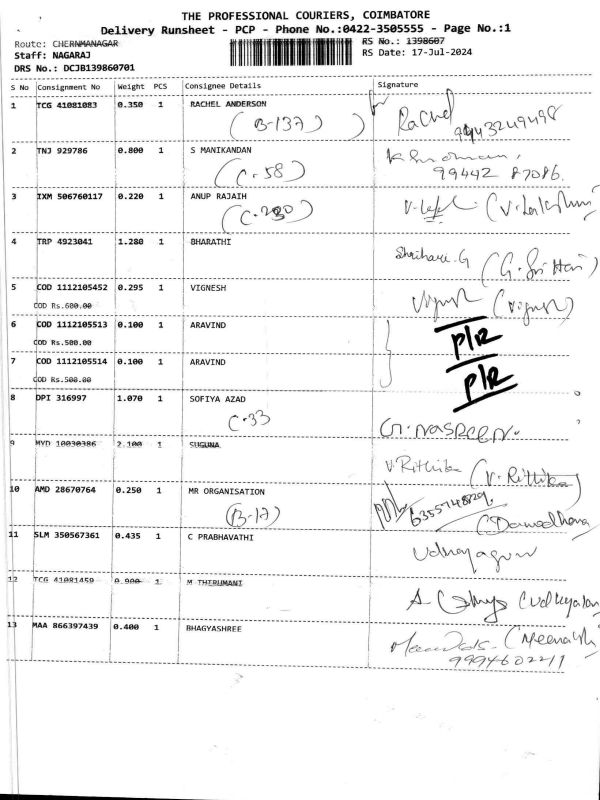 THE PROFESSIONAL COURIERS, COIMBATORE
Delivery Runsheet - PCP - Phone No.:0422-3505555 - Page No.:1
Route: CHERNMANAGAR RS No.: 1398607
Staff: NAGARAJ RS Date: 17-Jul-2024
DRS No.: DCJB139860701
S No Consignment No Weight PCS Consignee Details Signature
1 TCG 41081083 0.350 1 RACHEL ANDERSON for Rachel
(B-137) 9943249498
2 TNJ 929786 0.800 1 S MANIKANDAN
(C-58) 99442 87086.
3 IXM 506760117 0.220 1 ANUP RAJAIH (V. Lakshmi)
4 TRP 4923041 1.280 1 BHARATHI Shrihari. G (G. Sri Hari)
5 COD 1112105452 0.295 1 VIGNESH Vignesh (Vignesh)
COD Rs.600.00
6 COD 1112105513 0.100 1 ARAVIND P/R
COD Rs.500.00
7 COD 1112105514 0.100 1 ARAVIND P/R
COD Rs.500.00
8 DPI 316997 1.070 1 SOFIYA AZAD
C-33 G. NASREEN.
9 MYD 10030386 2.100 1 SUGUNA V. Rithika (V. Rithika)
10 AMD 28670764 0.250 1 MR ORGANISATION 6355748829.
(B-17) (Damodhara
11 SLM 350567361 0.435 1 C PRABHAVATHI
12 TCG 41081459 0.900 1 M THERUMANI
13 MAA 866397439 0.400 1 BHAGYASHREE (Meenakshi
9994602211